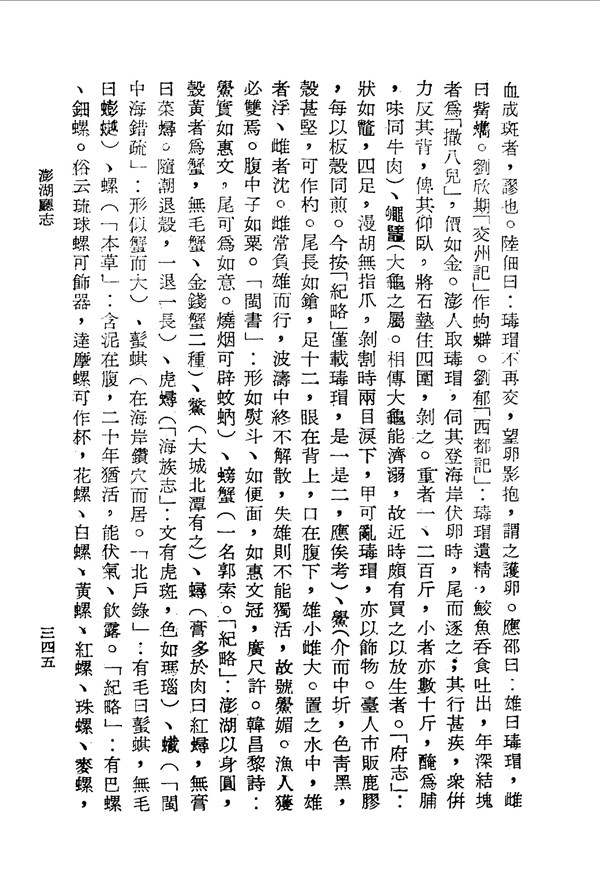 血成斑者，謬也。陸佃曰：瑇瑁不再交，望卵影抱，謂之護卵。應邵曰：雄曰瑇瑁，雌
曰觜蠵。劉欣期「交州記」作蚼蟕。劉郁「西都記」：瑇瑁遺精，鮫魚吞食吐出，年深結塊
者為「撒八兒」，價如金。澎人取瑇瑁，伺其登海岸伏卵時，尾而逐之；其行甚疾，衆併
力反其背，俾其仰臥，將石墊住四圍，剝之。重者一、二百斤，小者亦數十斤，醃為脯
，味同牛肉）、蠅鼊（大龜之屬。相傳大龜能濟溺，故近時頗有買之以放生者。「府志」：
狀如鼈，四足，漫胡無指爪，剝割時兩目淚下，甲可亂瑇瑁，亦以飾物。臺人市販鹿膠
，每以板殼同煎。今按「紀略」僅載瑇瑁，是一是二，應俟考）、鱟（介而中坼，色青黑，
殼甚堅，可作杓。尾長如鎗，足十二，眼在背上，口在腹下，雄小雌大。置之水中，雄
者浮、雌者沈。雌常負雄而行，波濤中終不解散，失雄則不能獨活，故號鱟媚。漁人獲
必雙焉。腹中子如粟。「閩書」：形如熨斗、如便面，如惠文冠，廣尺許。韓昌黎詩：
鱟實如惠文。尾可為如意。燒烟可辟蚊蚋）、螃蟹（一名郭索。「紀略」：澎湖以身圓，
殼黃者為蟹，無毛蟹、金錢蟹二種）、鱉（大城北潭有之）、蟳（膏多於肉曰紅蟳，無膏
曰菜蟳。隨潮退殼，一退一長）、虎蟳（「海族志」：文有虎斑，色如瑪瑙）、蠘（「閩
中海錯疏」：形似蟹而大）、蟚蜞（在海岸鑽穴而居。「北戶錄」：有毛曰蟚蜞，無毛
曰蟛𧑅）、螺（「本草」：含泥在腹，二十年猶活，能伏氣、飲露。「紀略」：有巴螺
、鈿螺。俗云琉球螺可飾器，達摩螺可作杯，花螺、白螺、黃螺、紅螺、珠螺、麥螺，
澎湖廳志
三四五